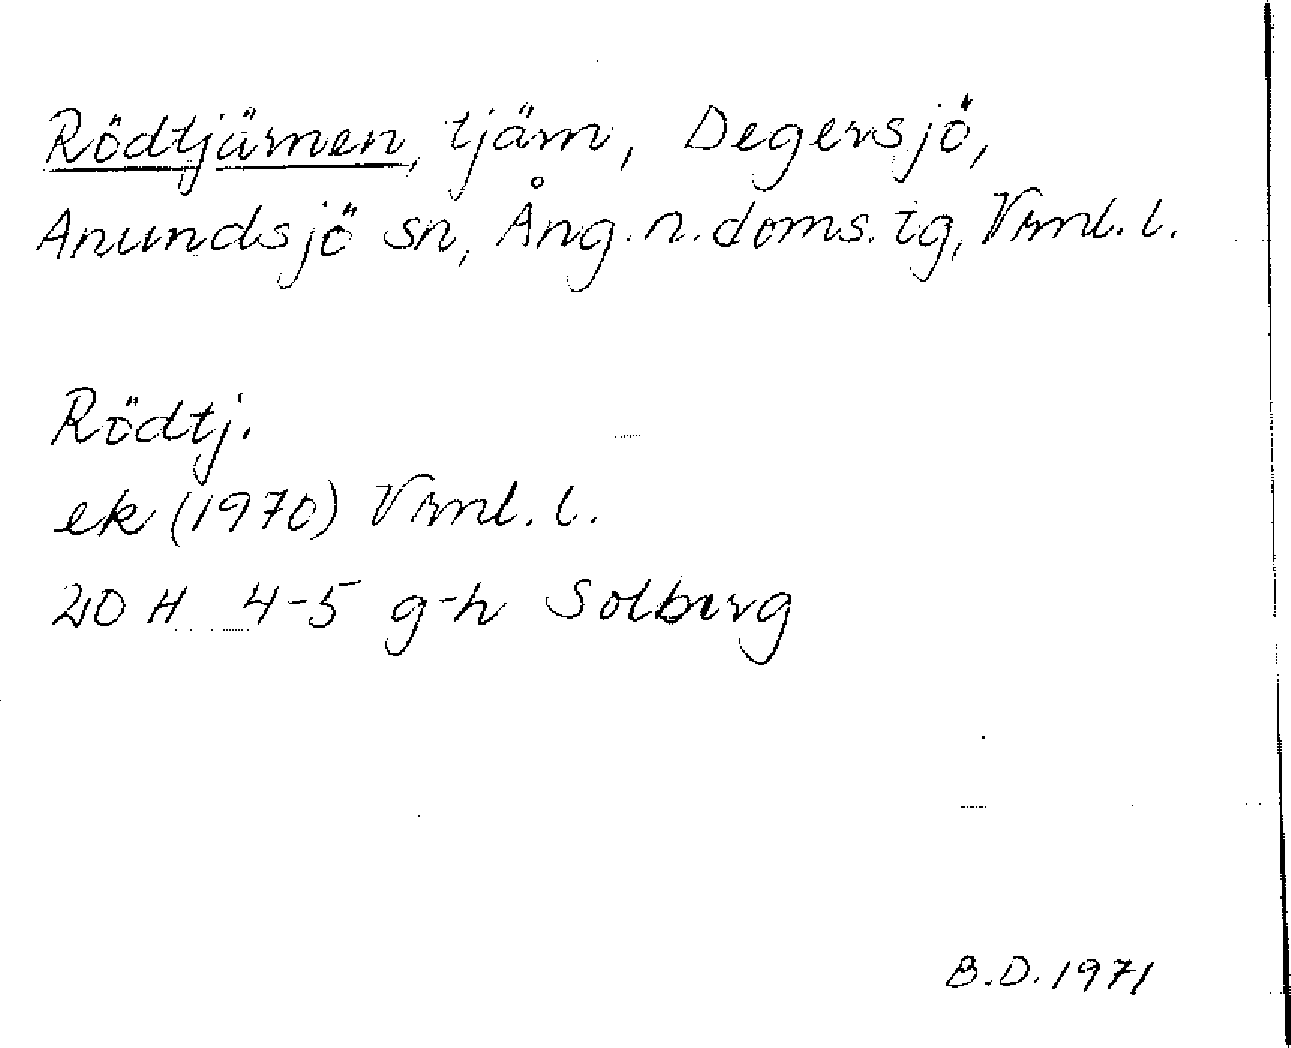 Rödtjärnen, tjärn, Degersjö,
Anundsjö sn, Ång.n.doms.tg, Vrnl.l.
Rödtj.
ek (1970) Vrnl.l.
20 H 4-5 g-h Solberg
B.D.1971